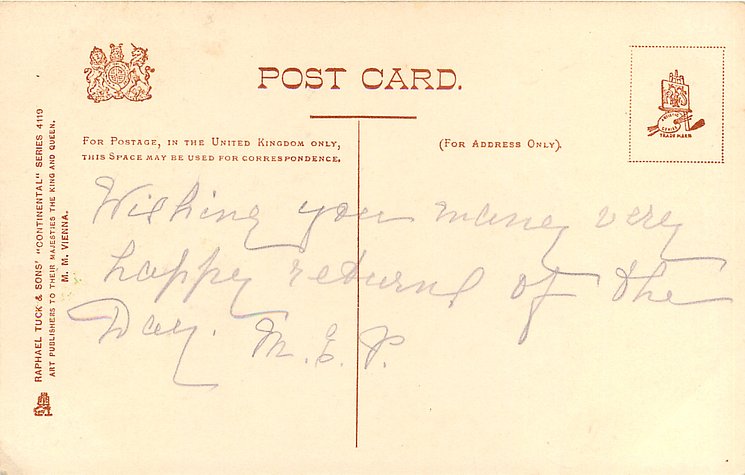 POST CARD.
FOR POSTAGE, IN THE UNITED KINGDOM ONLY,
THIS SPACE MAY BE USED FOR CORRESPONDENCE.
(FOR ADDRESS ONLY).
ARTISTIC
SERIES
TRADE MARK
RAPHAEL TUCK & SONS' "CONTINENTAL" SERIES 4119
ART PUBLISHERS TO THEIR MAJESTIES THE KING AND QUEEN.
M. M. VIENNA.
Wishing you many very
happy returns of the
Day. M. E. P.